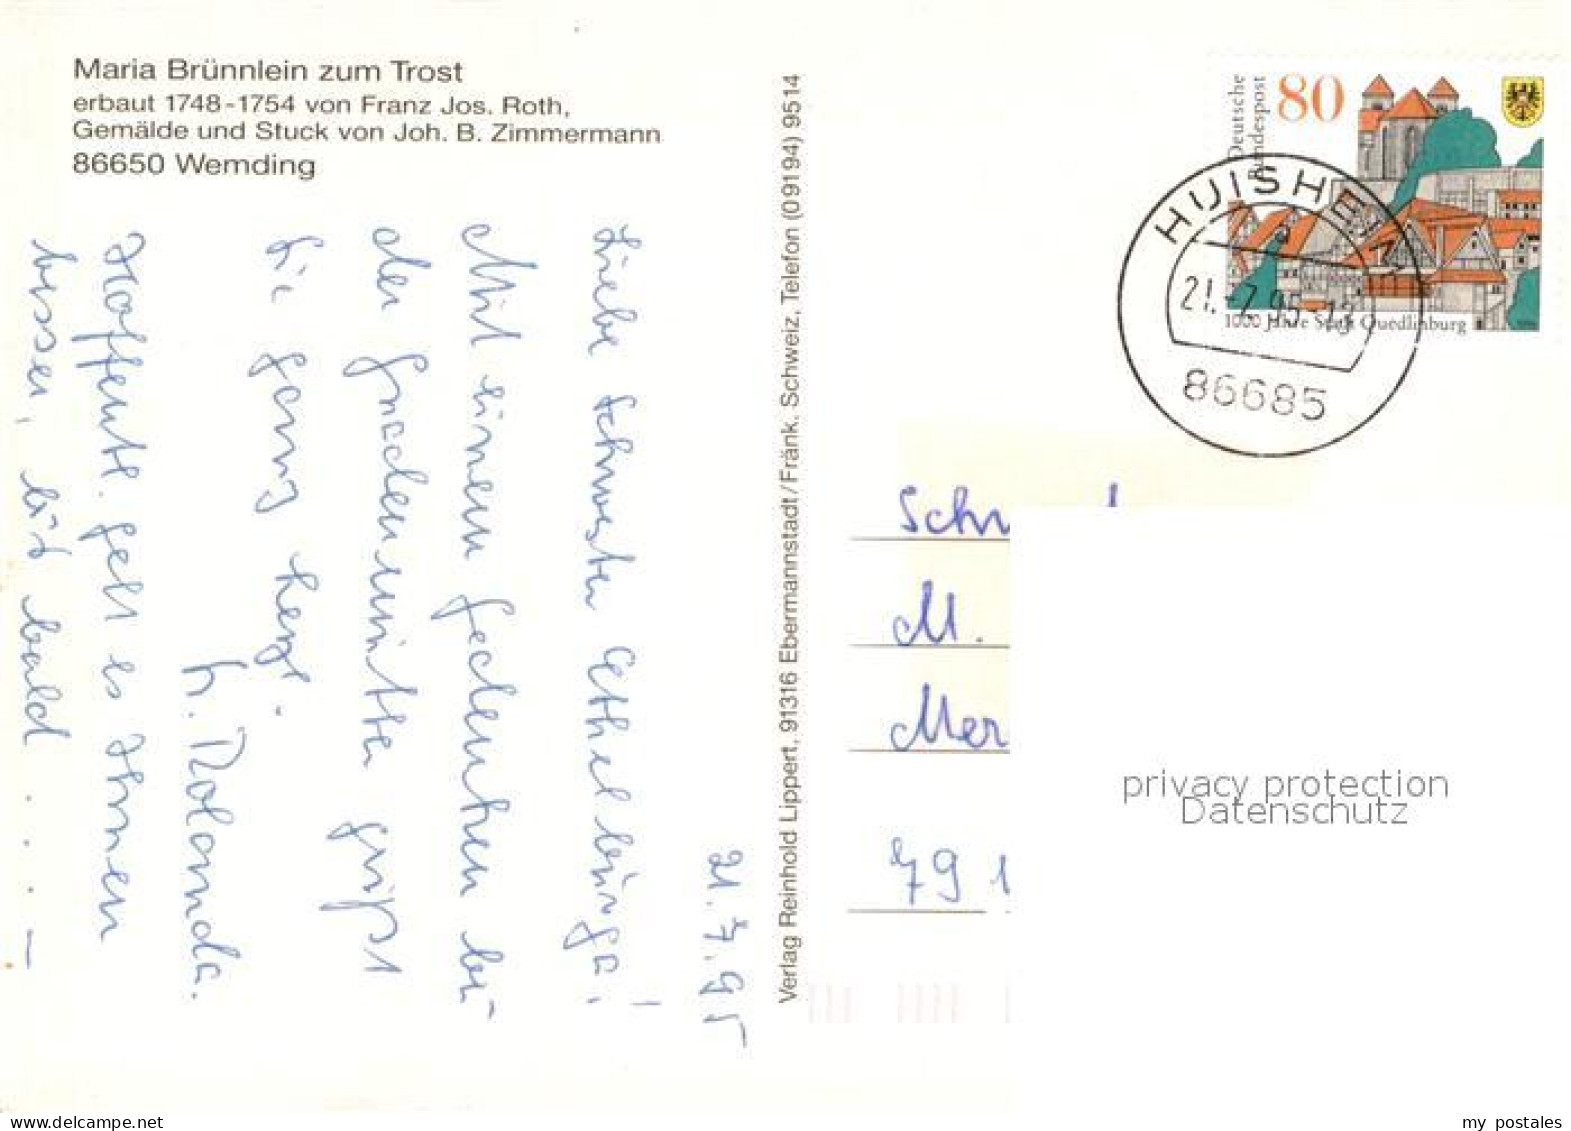 Maria Brünnlein zum Trost
erbaut 1748-1754 von Franz Jos. Roth,
Gemälde und Stuck von Joh. B. Zimmermann
86650 Wemding
21.7.95
Liebe Schwester Ethelburga!
Mit einem Gedenken bei
der Gnadenmutter grüßt
Sie ganz herzl.
Sr. Rolanda.
Hoffentl. geht es Ihnen
besser, bis bald .... –
Verlag Reinhold Lippert, 91316 Ebermannstadt/Fränk. Schweiz, Telefon (09194) 9514
Deutsche
Bundespost
80
1000 Jahre Stadt Quedlinburg
HUISHEIM
a
21.-7.95-13
86685
Schw
M.
Mer
79 1
privacy protection
Datenschutz
my postales